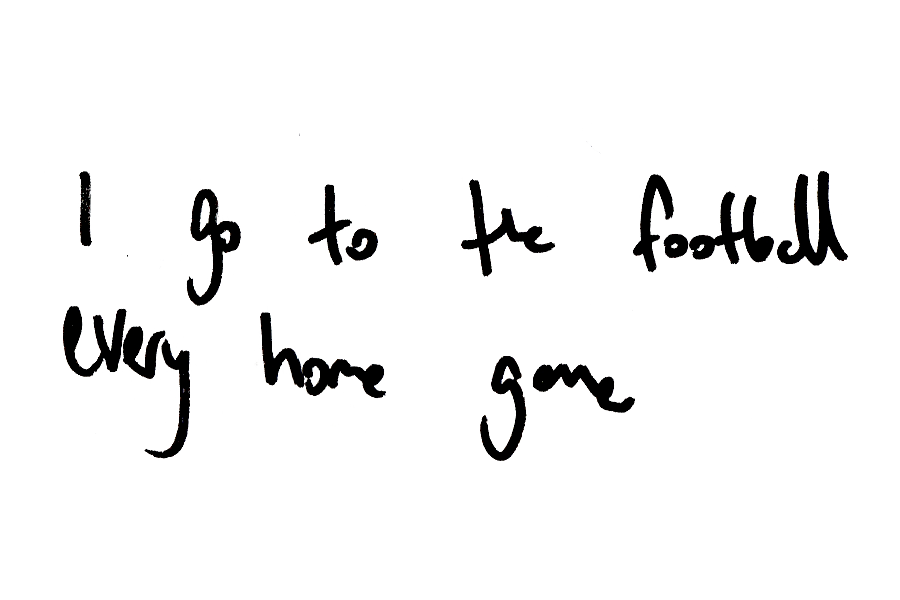 I go to the football
every home game